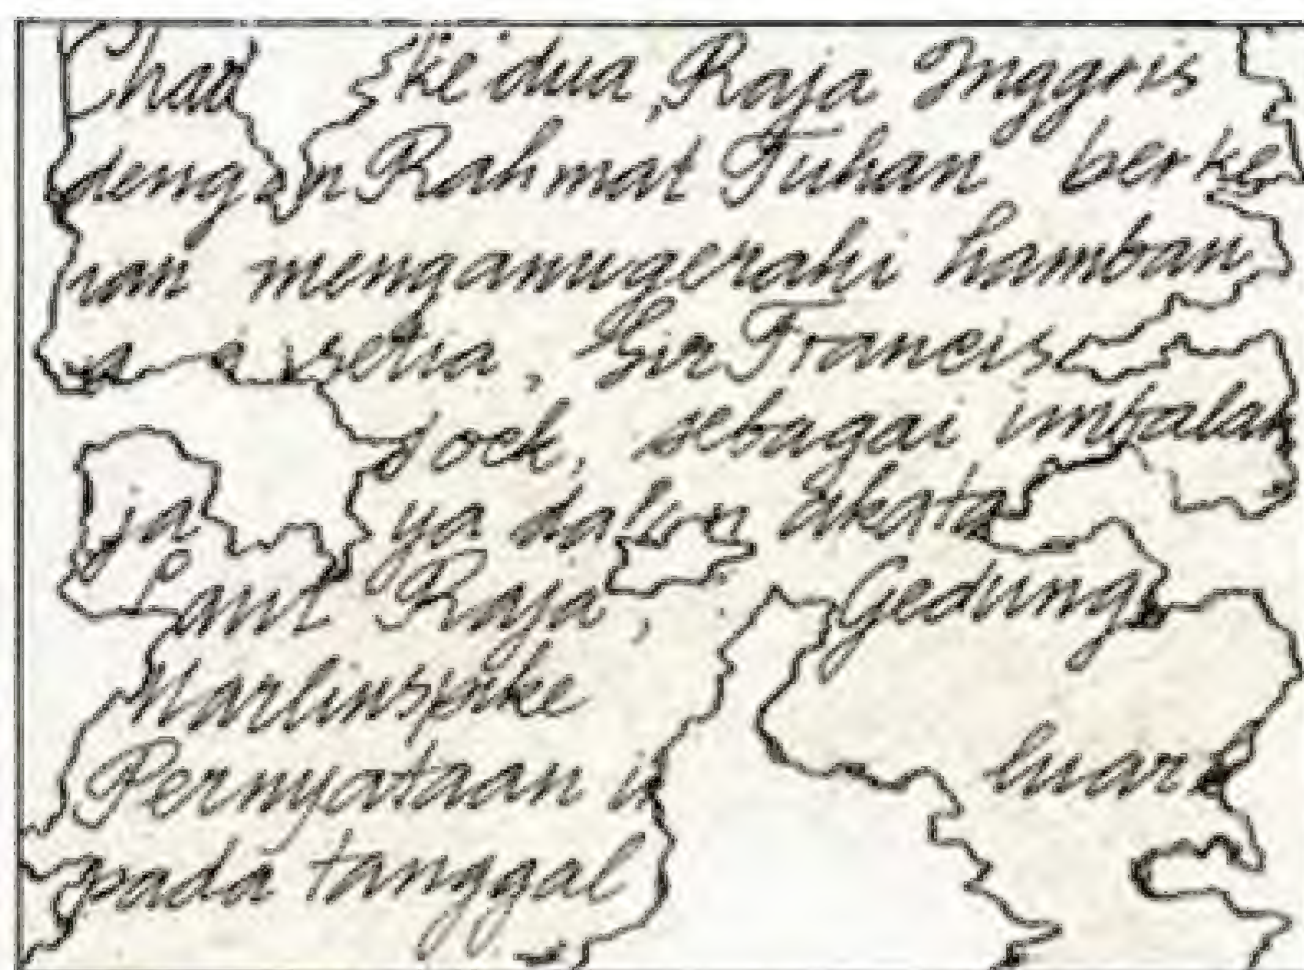 Char ke dua, Raja Inggris
dengan Rahmat Tuhan berke
nan menganugerahi hamban
setia, Sir Francis
dock, sebagai imbalan
ja ya dalam Akata
Laut Raja, Gedung
Marlinspike
Pernyataan in luark
pada tanggal